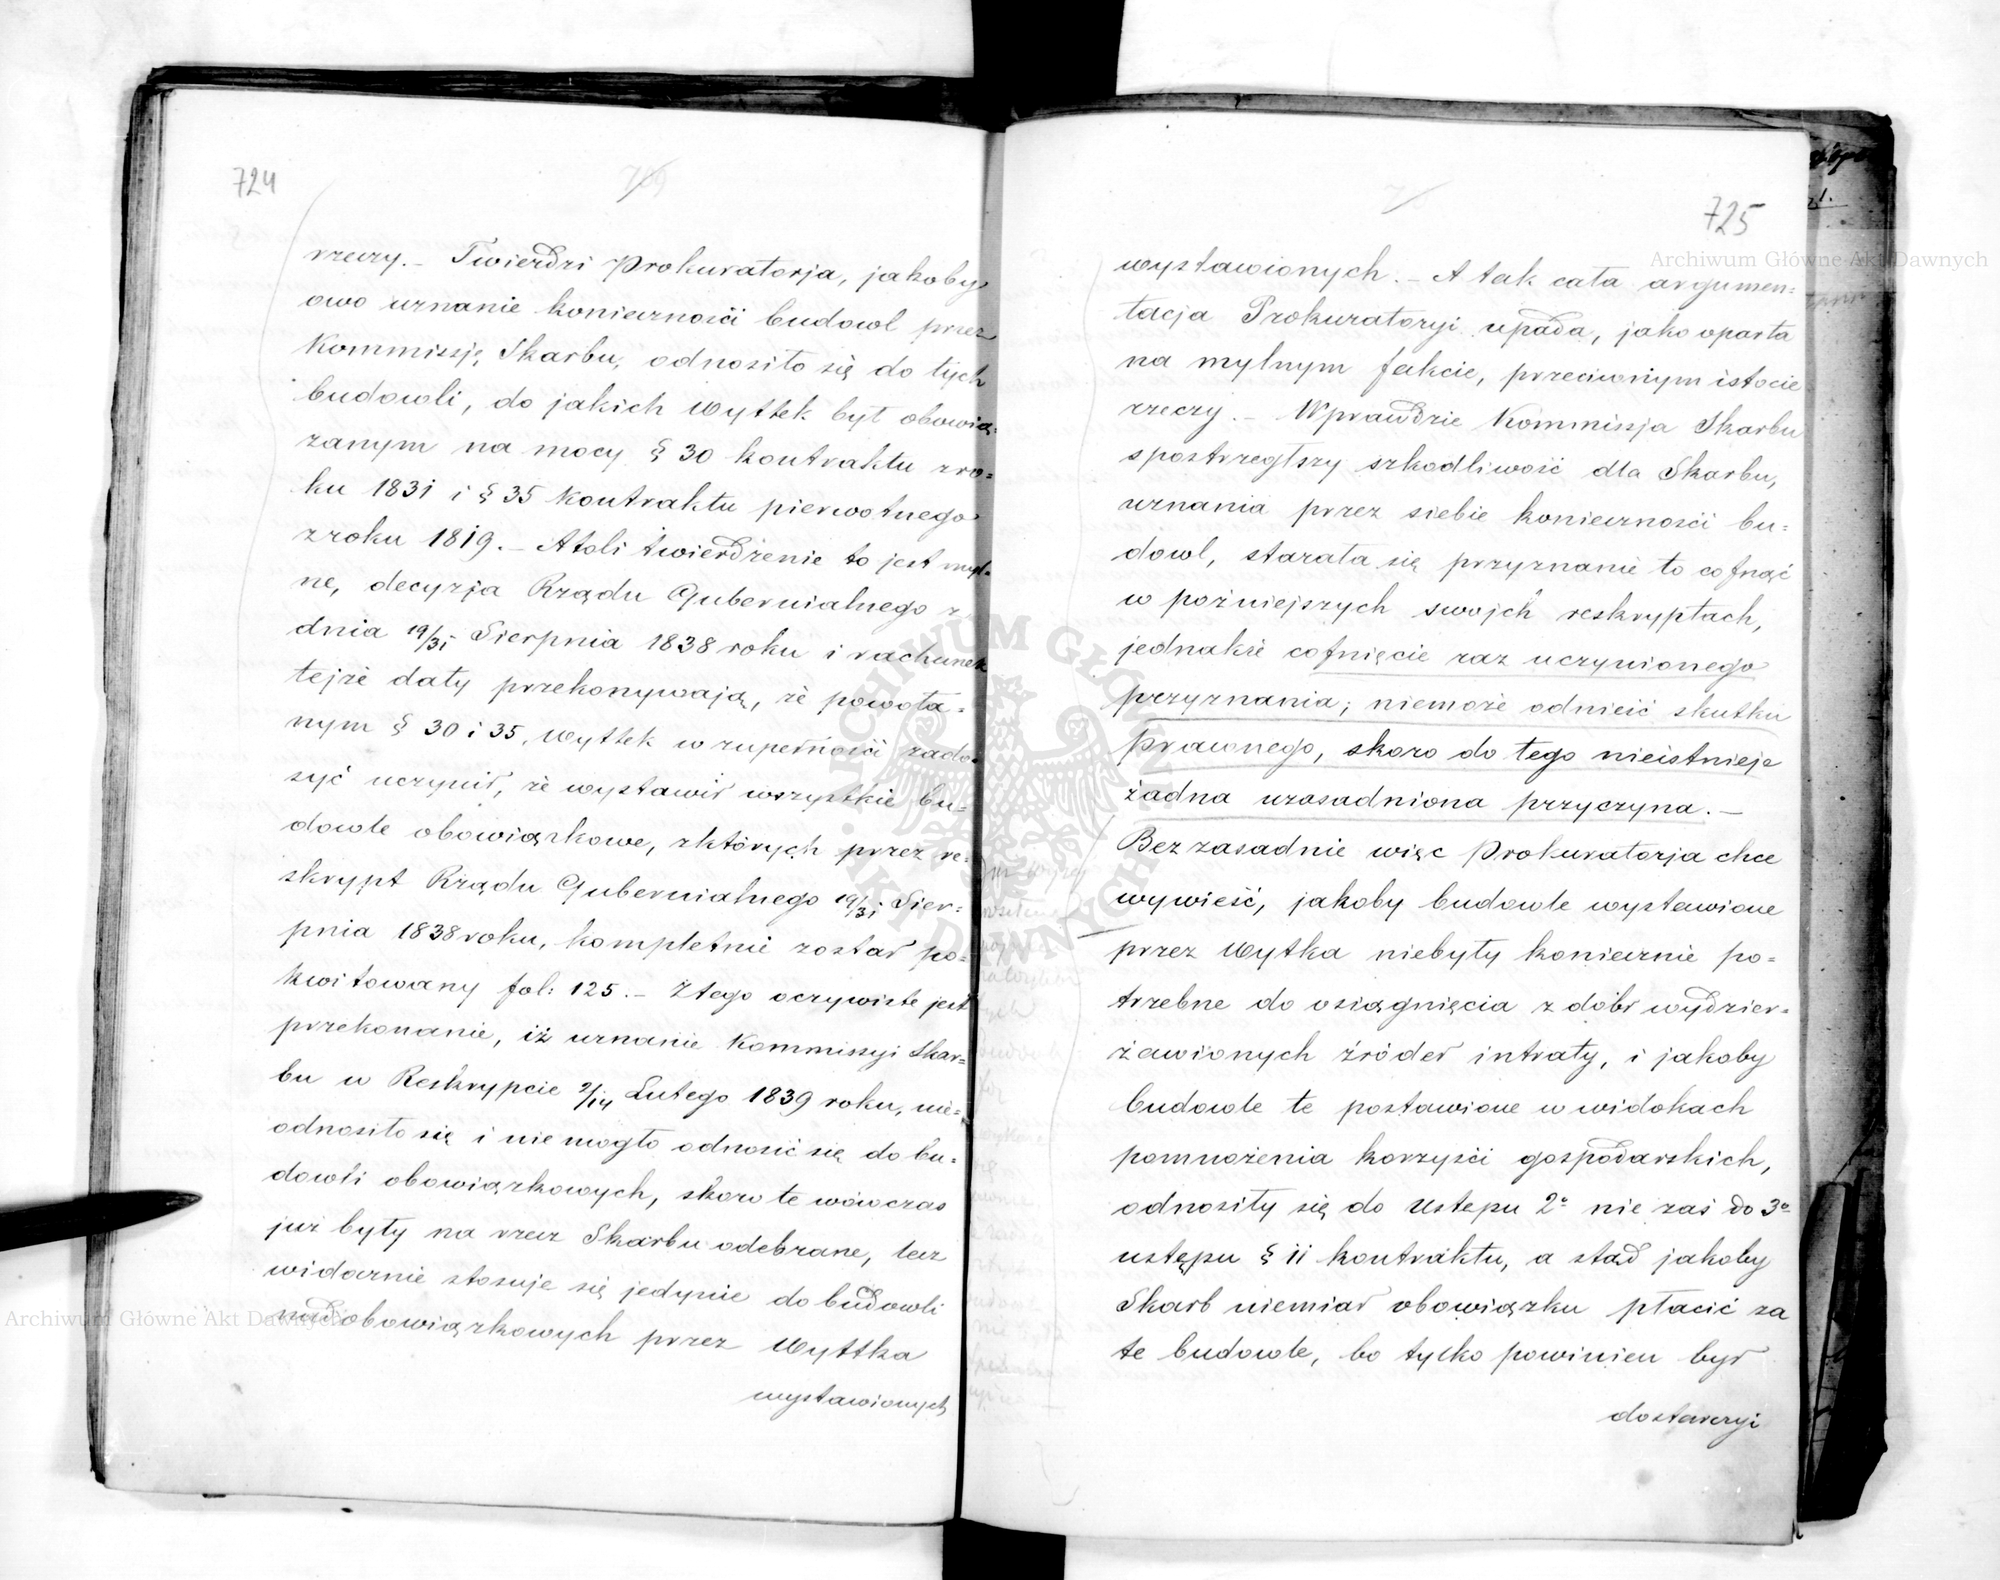 724
rzeczy. – Twierdzi Prokuratorja, jakoby
owo uznanie konieczności budowl przez
Kommissję Skarbu, odnosiło się do tych
budowli, do jakich Wyttek był obowią=
zanym na mocy § 30 kontraktu z ro=
ku 1831 i § 35 kontraktu pierwotnego
z roku 1819. – Atoli twierdzenie to jest myl=
ne, decyzja Rządu Gubernialnego z
dnia 19/31 Sierpnia 1838 roku i rachunek
tejże daty przekonywają, że powoła=
nym § 30 i 35, Wyttek w zupełności zado=
syć uczynił, że wystawił wszystkie bu=
dowle obowiązkowe, z których przez re=
skrypt Rządu Gubernialnego 19/31 Sier=
pnia 1838 roku, kompletnie został po=
kwitowany fol: 125. – Z tego oczywiste jest
przekonanie, iż uznanie Kommissyi Skar=
bu w Reskrypcie 2/14 Lutego 1839 roku, nie=
odnosiło się i nie mogło odnosić się do bu=
dowli obowiązkowych, skoro te wówczas
już były na rzecz Skarbu odebrane, lecz
widocznie stosuje się jedynie do budowli
nadobowiązkowych przez Wyttka
wystawionych
725
wystawionych. – A tak cała argumen=
tacja Prokuratoryi upada, jako oparta
na mylnym fakcie, przeciwnym istocie
rzeczy. – Wprawdzie Kommissja Skarbu
spostrzegłszy szkodliwość dla Skarbu,
uznania przez siebie konieczności bu=
dowl, starała się przyznanie to cofnąć
w poźniejszych swojch reskryptach,
jednakże cofnięcie raz uczynionego
przyznania, niemoże odnieść skutku
prawnego, skoro do tego nieistnieje
żadna uzasadniona przyczyna. –
Bezzasadnie więc Prokuratorja chce
wywieść, jakoby budowle wystawione
przez Wytka niebyły koniecznie po=
trzebne do osiągnięcia z dóbr wydzier=
żawionych źródeł intraty, i jakoby
budowle te postawione w widokach
pomnożenia korzyści gospodarskich,
odnosiły się do Ustępu 2º nie zaś do 3º
ustępu § 11 kontraktu, a stąd jakoby
Skarb niemiał obowiązku płacić za
te budowle, bo tylko powinien był
dostarczyć